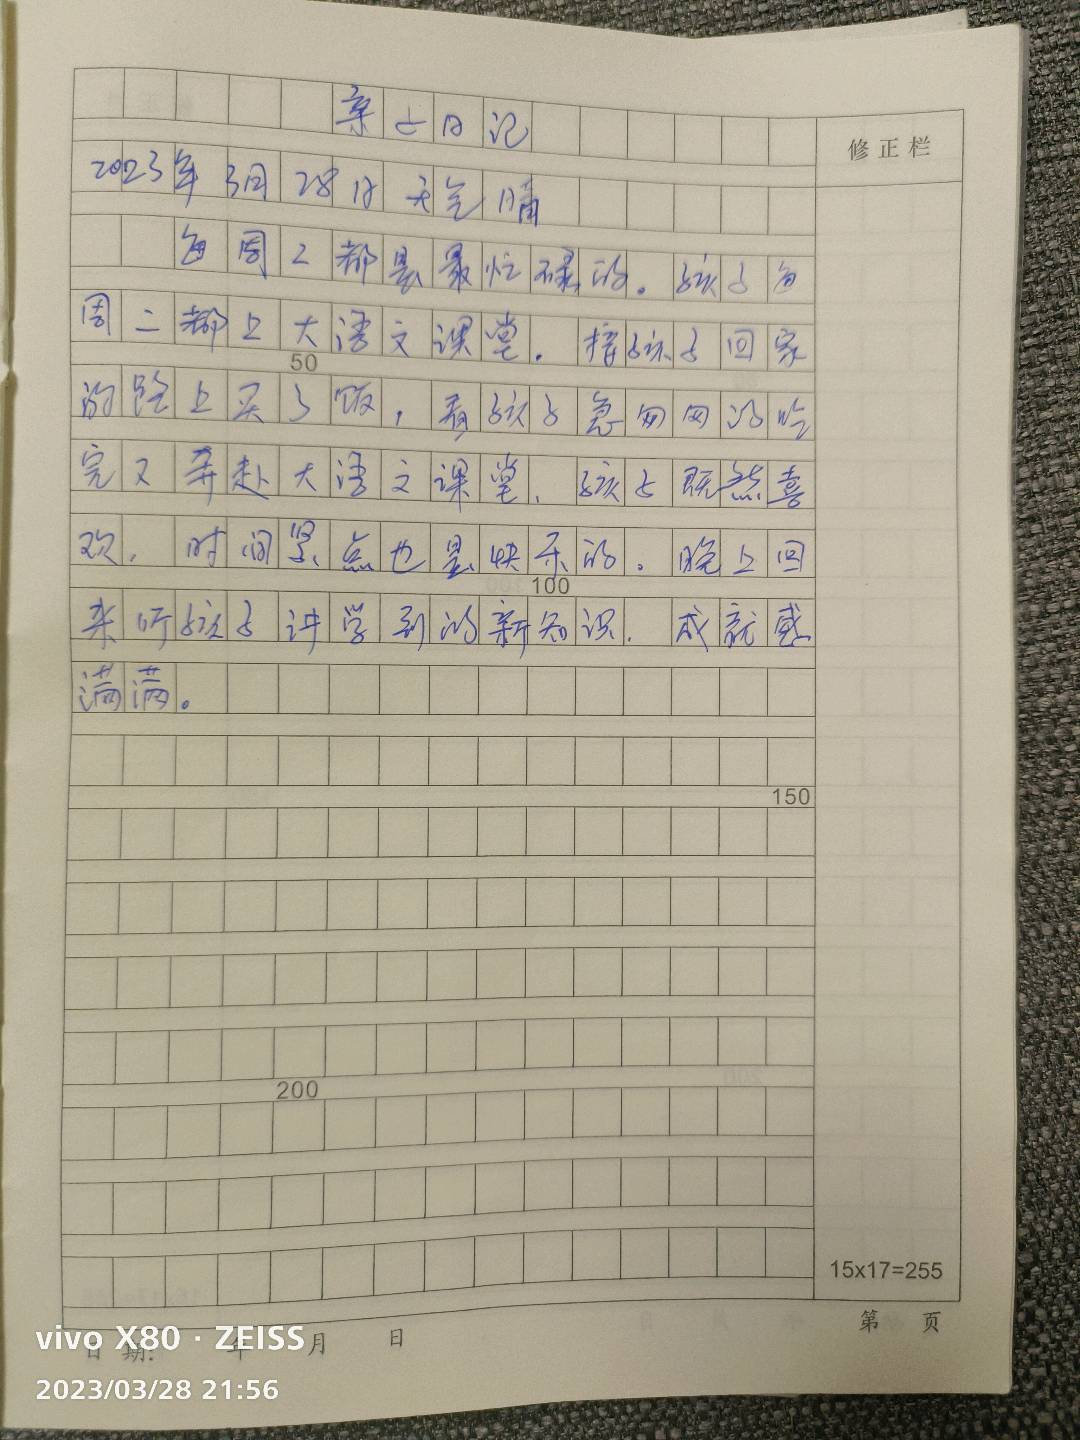 亲子日记
修正栏
2023年3月28日 天气晴
每周二都是最忙碌的。孩子每
周二都上大语文课堂。接孩子回家
50
的路上买了饭,看孩子急匆匆的吃
完又奔赴大语文课堂、孩子既然喜
欢,时间紧点也是快乐的。晚上回
100
来听孩子讲学到的新知识,成就感
满满。
150
200
15x17=255
第 页
日期: 年 月 日
vivo X80 · ZEISS
2023/03/28 21:56